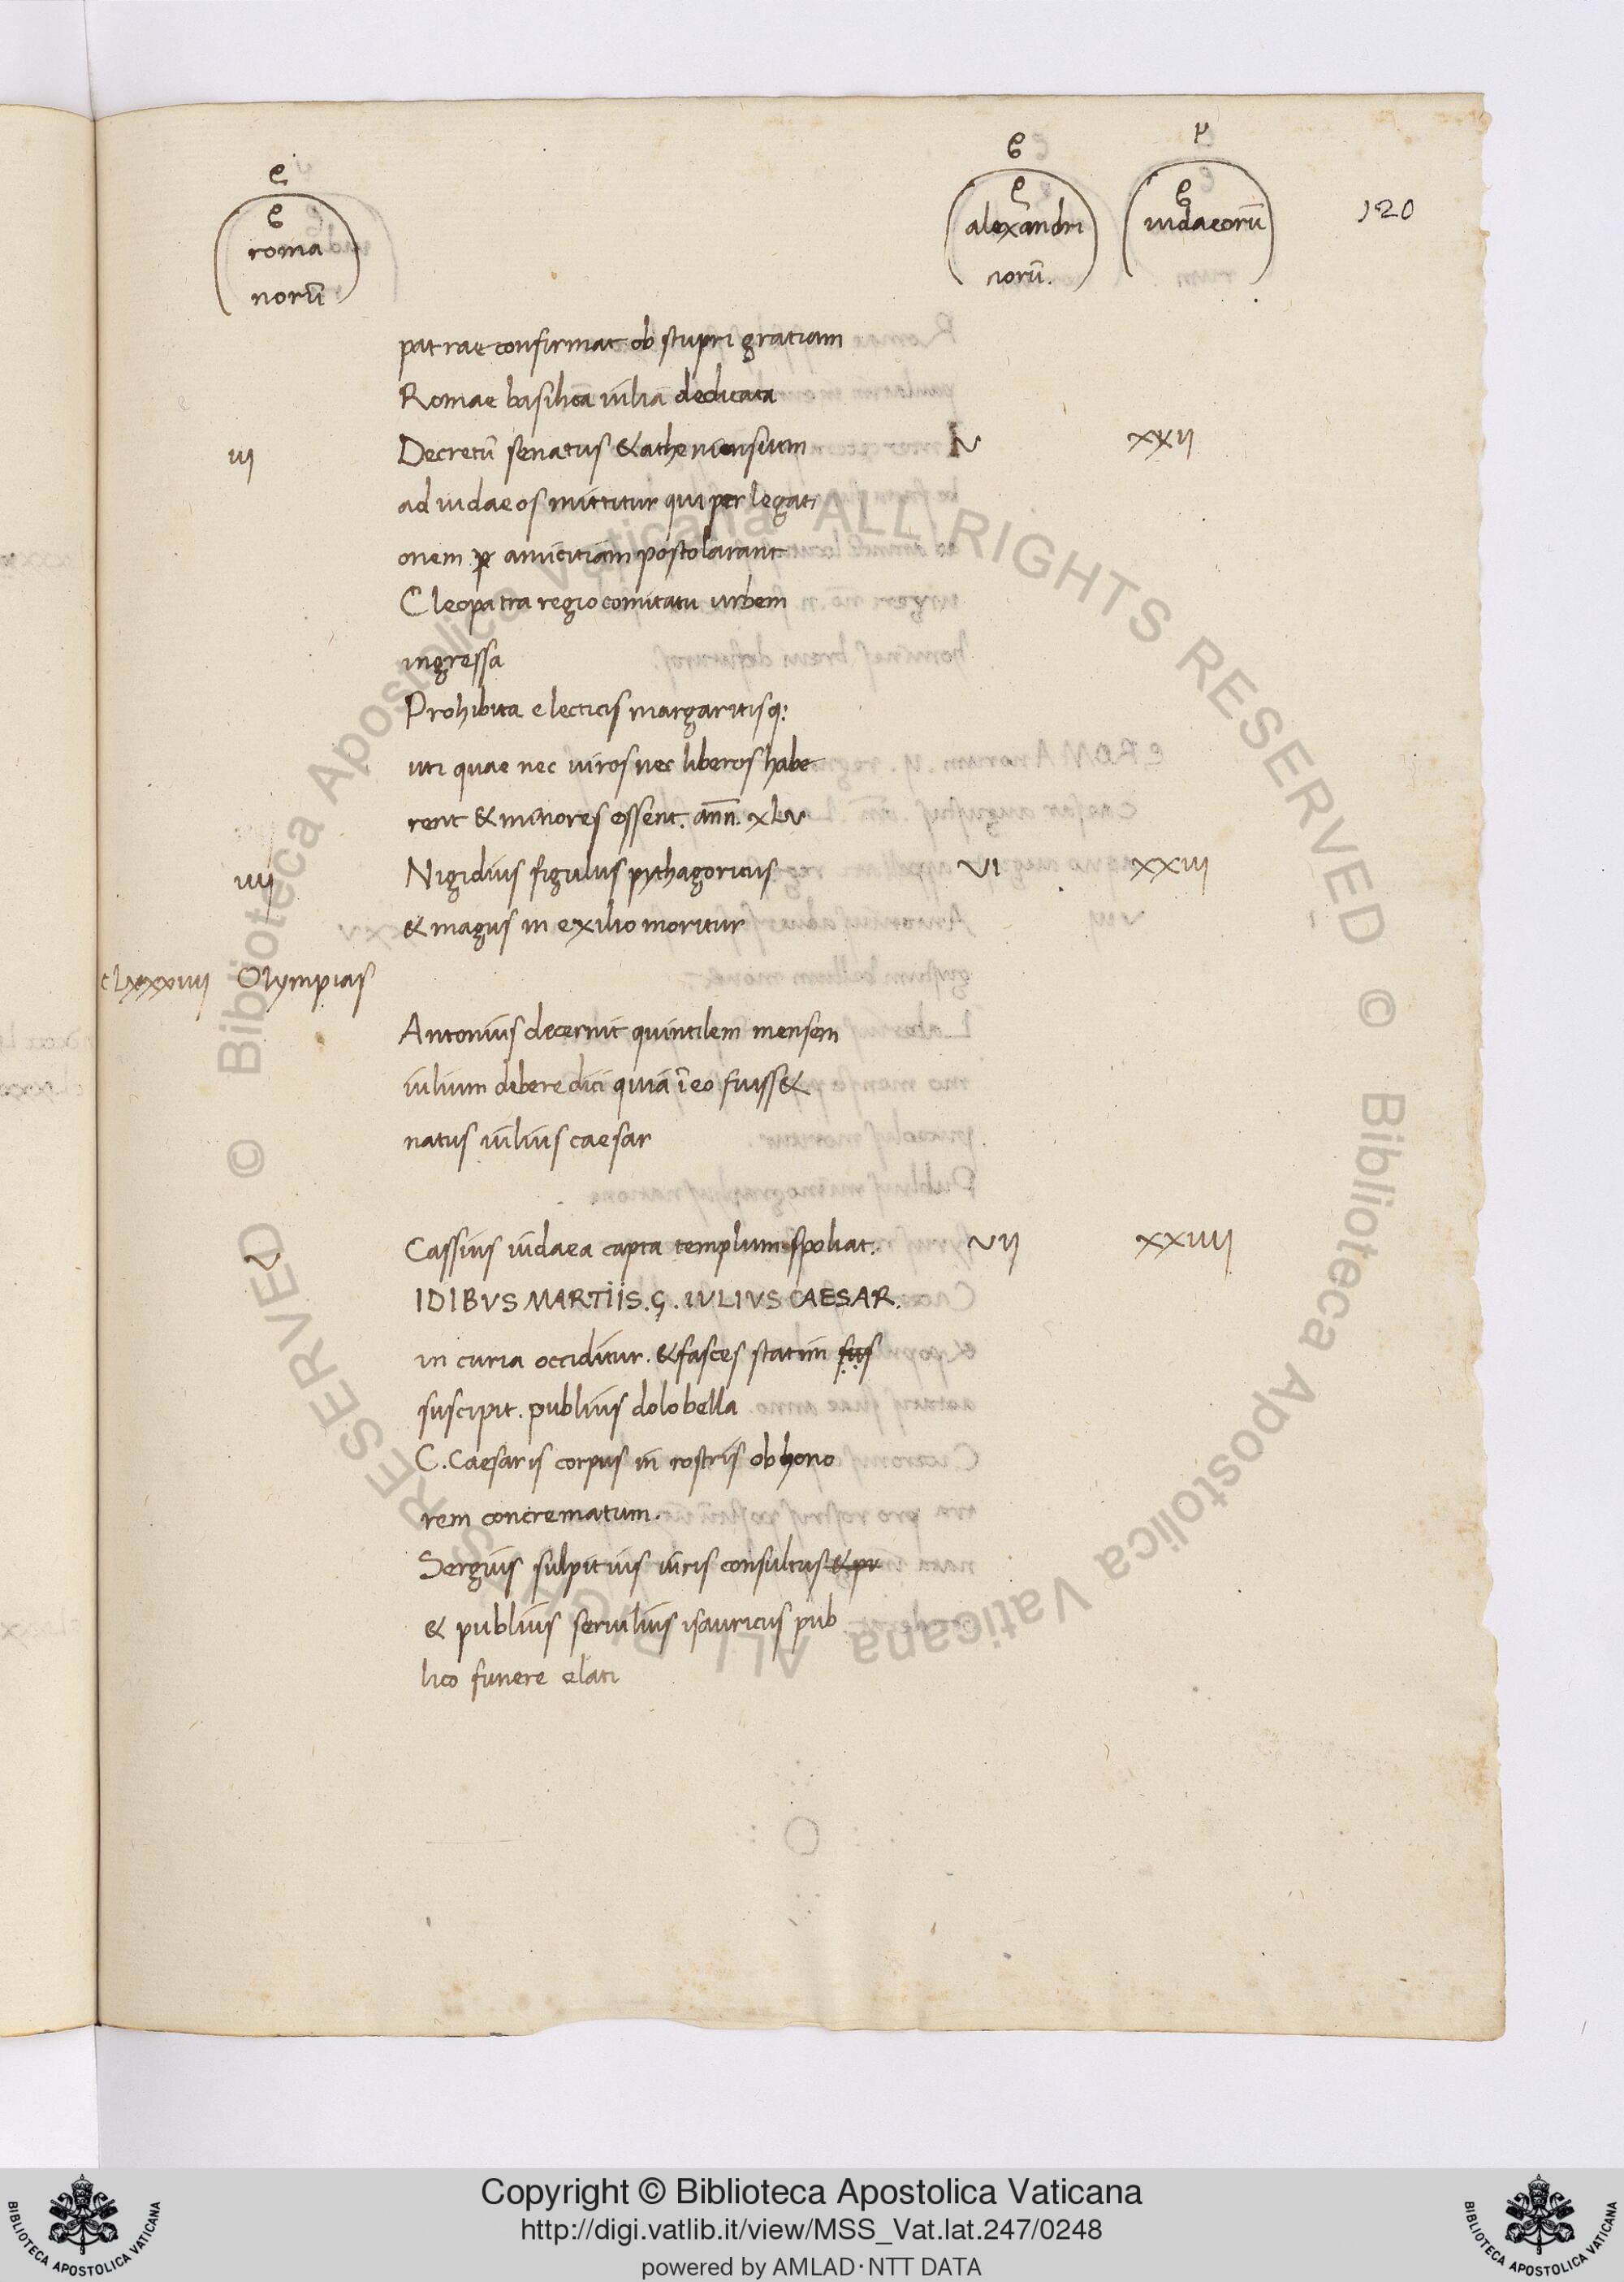 roma
norū
alexandri
norū.
iudaeorū
120
patrae confirmat ob stupri gratiam
Romae basilica iulia dedicata
iii Decretū senatus & atheniensium V xxii
ad iudaeos mittitur qui per legati
onem ꝑ amicitiam postolarant
Cleopatra regio comitatu urbem
ingressa
Prohibita electicis margaritisq;
uti quae nec uiros nec liberos habe
rent & minores essent. ann̄. xLv
iiii Nigidius figulus pythagoricus VI xxiii
& magus in exilio moritur
cLxxxiiii Olympias
Antonius decernit quintilem mensem
iulium debere dici quia ī eo fuiss&
natus iulius caesar
V Cassius iudaea capta templum spoliat. VII xxiiii
IDIBVS MARTIIS. Ç. IVLIVS CAESAR.
in curia occiditur. & fasces statim sus
suscipit. publius dolobella
C. Caesaris corpus in rostris ob hono
rem concrematum.
Sergius sulpitius iuris consultus & pu
& publius seruilius isauricus pub
lico funere elati
© Biblioteca Apostolica Vaticana ALL RIGHTS RESERVED
© Biblioteca Apostolica Vaticana ALL RIGHTS RESERVED
Copyright © Biblioteca Apostolica Vaticana
http://digi.vatlib.it/view/MSS_Vat.lat.247/0248
powered by AMLAD·NTT DATA
BIBLIOTECA APOSTOLICA VATICANA
BIBLIOTECA APOSTOLICA VATICANA